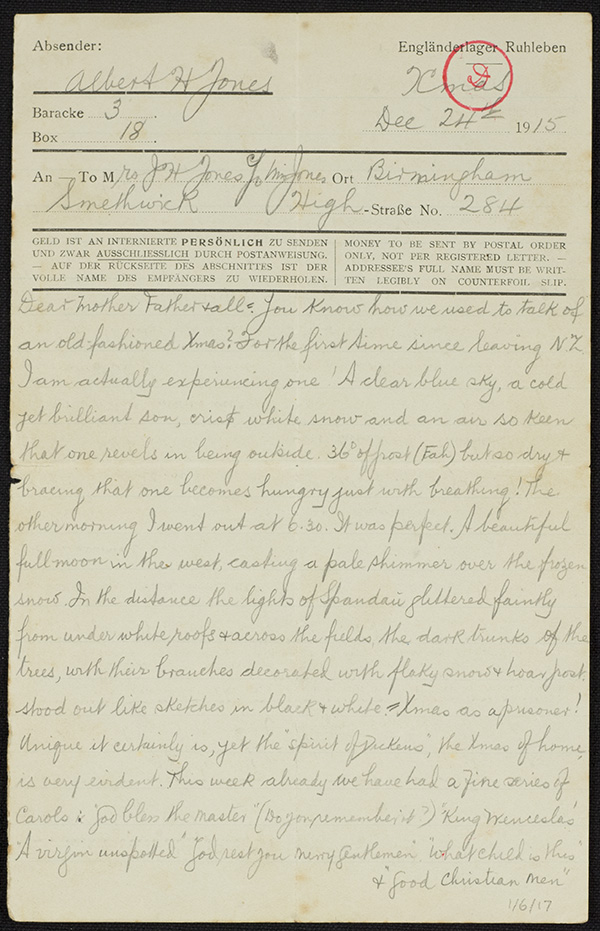 Absender: Engländerlager Ruhleben
Albert H Jones Xmas
Baracke 3 Dec 24th 1915
Box 18
An — To Mrs J H Jones c/o Mrs Jones Ort Birmingham
Smethwick High-Straße No. 284
GELD IST AN INTERNIERTE PERSÖNLICH ZU SENDEN
UND ZWAR AUSSCHLIESSLICH DURCH POSTANWEISUNG.
— AUF DER RÜCKSEITE DES ABSCHNITTES IST DER
VOLLE NAME DES EMPFÄNGERS ZU WIEDERHOLEN.
MONEY TO BE SENT BY POSTAL ORDER
ONLY, NOT PER REGISTERED LETTER. —
ADDRESSEE'S FULL NAME MUST BE WRIT-
TEN LEGIBLY ON COUNTERFOIL SLIP.
Dear Mother Father & all = You know how we used to talk of
an old-fashioned Xmas? For the first time since leaving N Z
I am actually experiencing one! A clear blue sky, a cold
yet brilliant son, crisp white snow and an air so keen
that one revels in being outside. 36° of frost (Fah) but so dry &
bracing that one becomes hungry just with breathing! The
other morning I went out at 6.30. It was perfect. A beautiful
full moon in the west, casting a pale shimmer over the frozen
snow. In the distance the lights of Spandau glittered faintly
from under white roofs & across the fields, the dark trunks of the
trees, with their branches decorated with flaky snow & hoar frost.
stood out like sketches in black & white. = Xmas as a prisoner!
Unique it certainly is, yet the "spirit of Dickens", the Xmas of home,
is very evident. This week already we have had a fine series of
Carols: "God bless the master" (Do you remember it?) "King Wenceslas"
"A virgin unspotted" "God rest you merry gentlemen" "What child is this"
& "Good Christian Men"
1/6/17